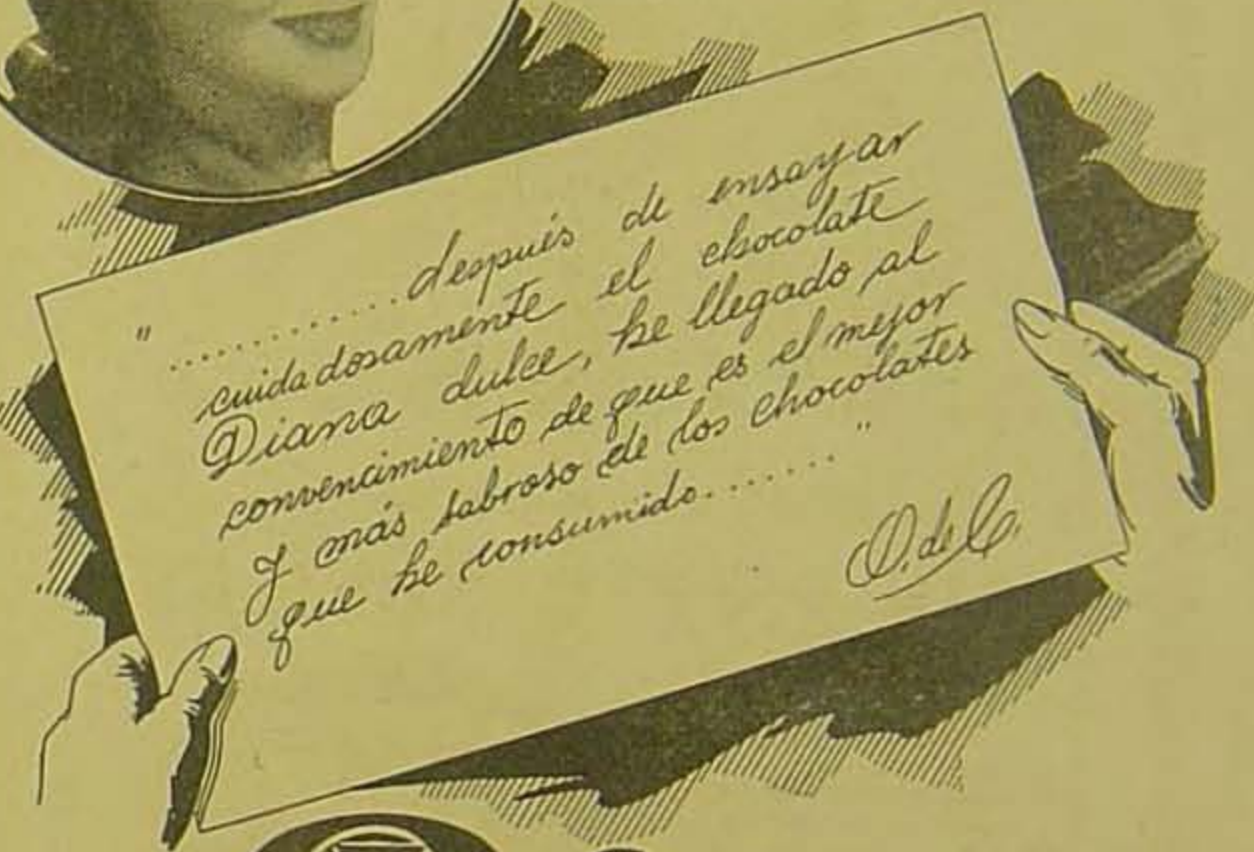 "..............después de ensayar
cuidadosamente el chocolate
Diana dulce, he llegado al
convencimiento de que es el mejor
y más sabroso de los chocolates
que he consumido......."
O. de C.